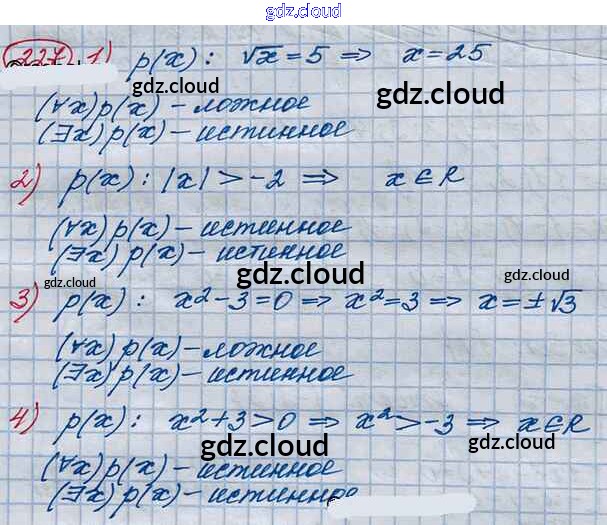 gdz.cloud
227 1) p(x): √x = 5 ⇒ x = 25
gdz.cloud
(∀x) p(x) – ложное
(∃x) p(x) – истинное
gdz.cloud
2) p(x): |x| > -2 ⇒ x ∈ R
(∀x) p(x) – истинное
(∃x) p(x) – истинное
gdz.cloud
gdz.cloud
gdz.cloud
3) p(x): x² - 3 = 0 ⇒ x² = 3 ⇒ x = ±√3
(∀x) p(x) – ложное
gdz.cloud
(∃x) p(x) – истинное
4) p(x): x² + 3 > 0 ⇒ x² > -3 ⇒ x ∈ R
gdz.cloud
gdz.cloud
(∀x) p(x) – истинное
(∃x) p(x) – истинное